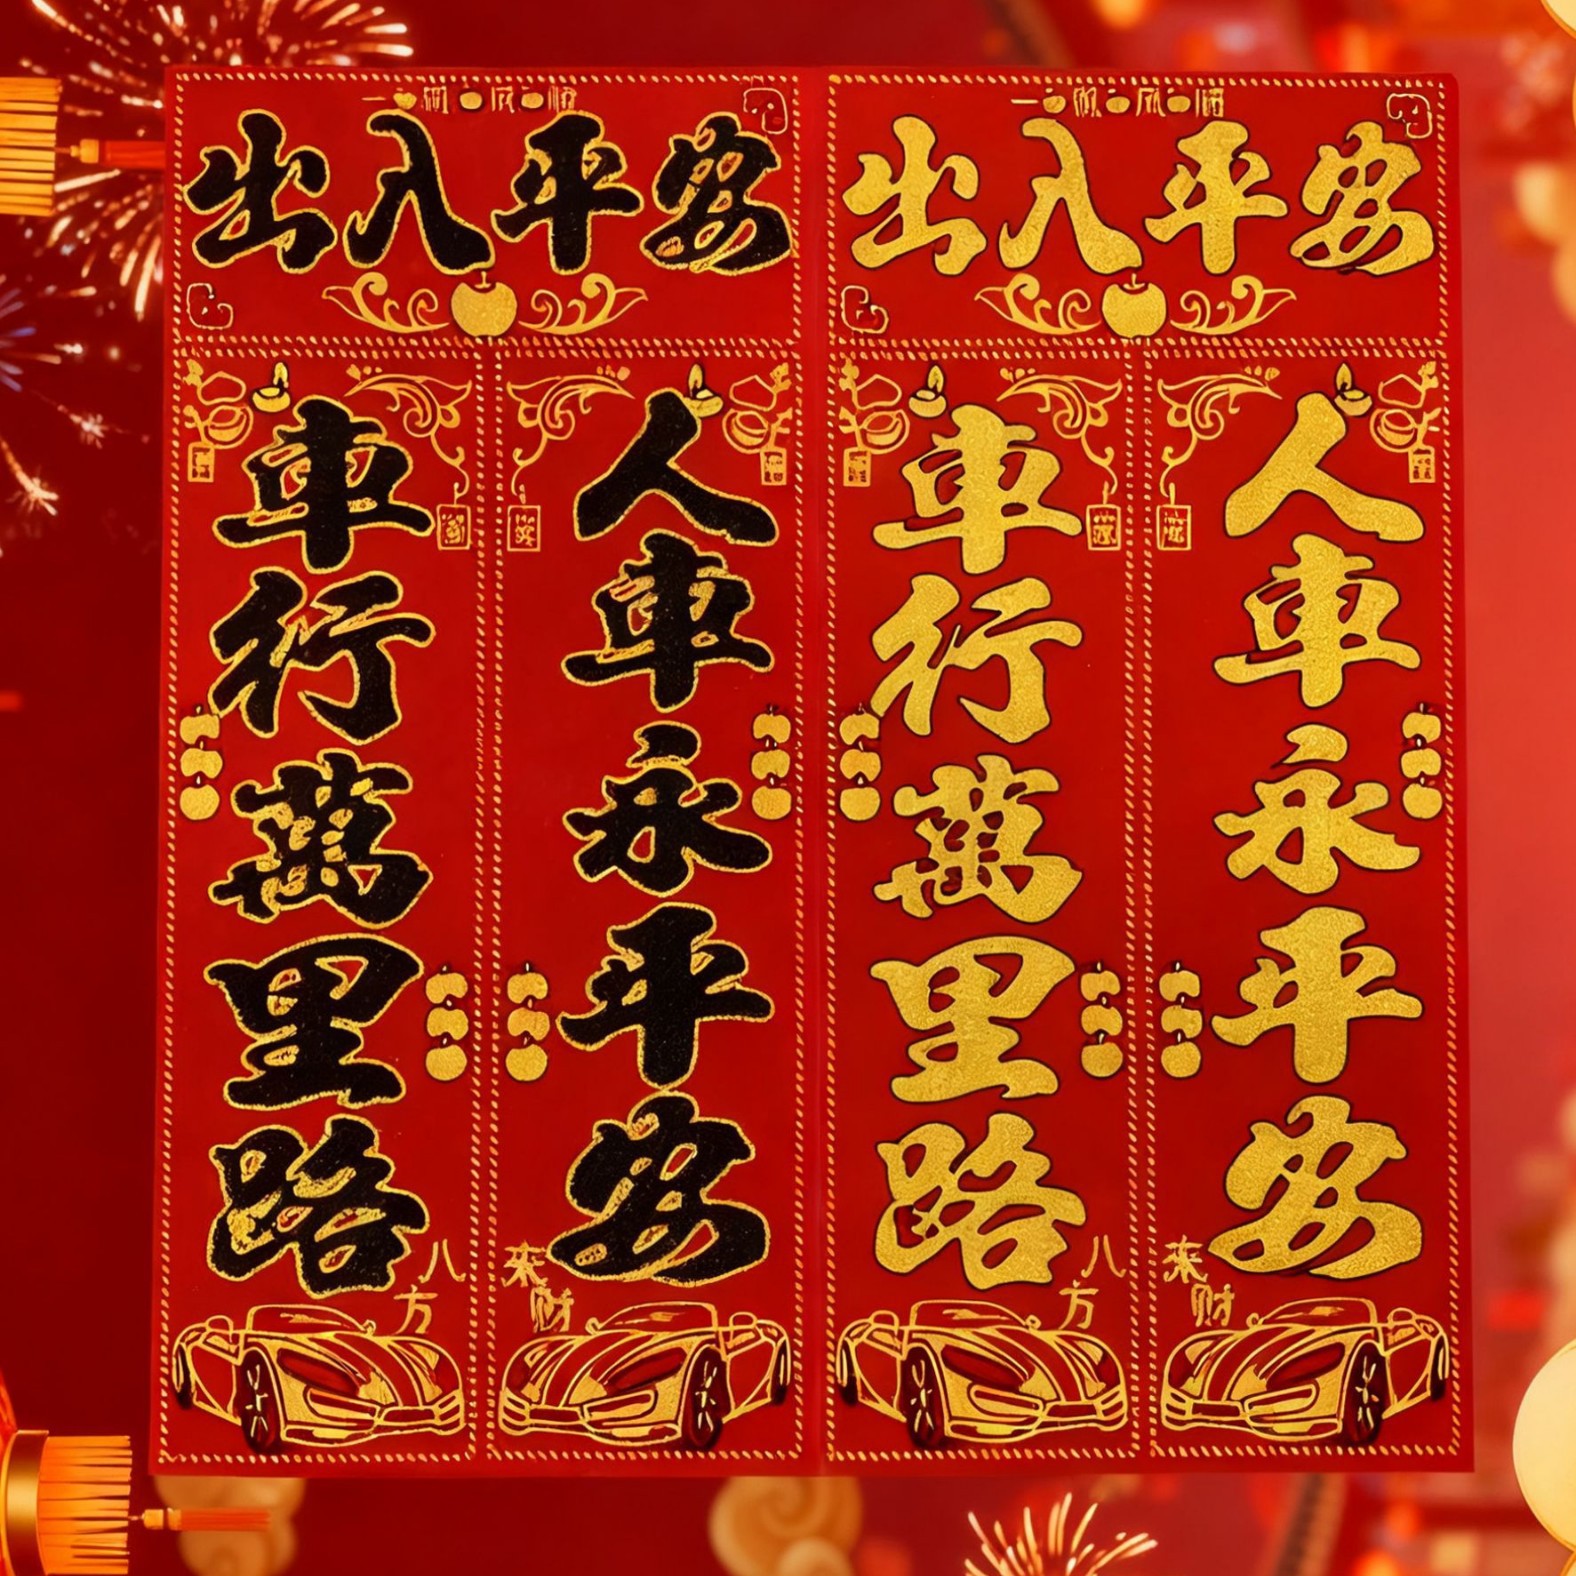 一帆风顺
出入平安
車行萬里路
人車永平安
八方
来财
一帆风顺
出入平安
車行萬里路
人車永平安
八方
来财